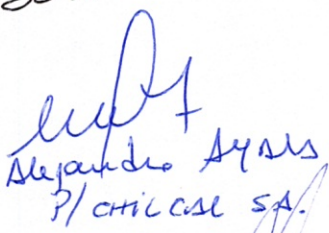 Alejandro Ayala
P/ CHILCAL S.A.